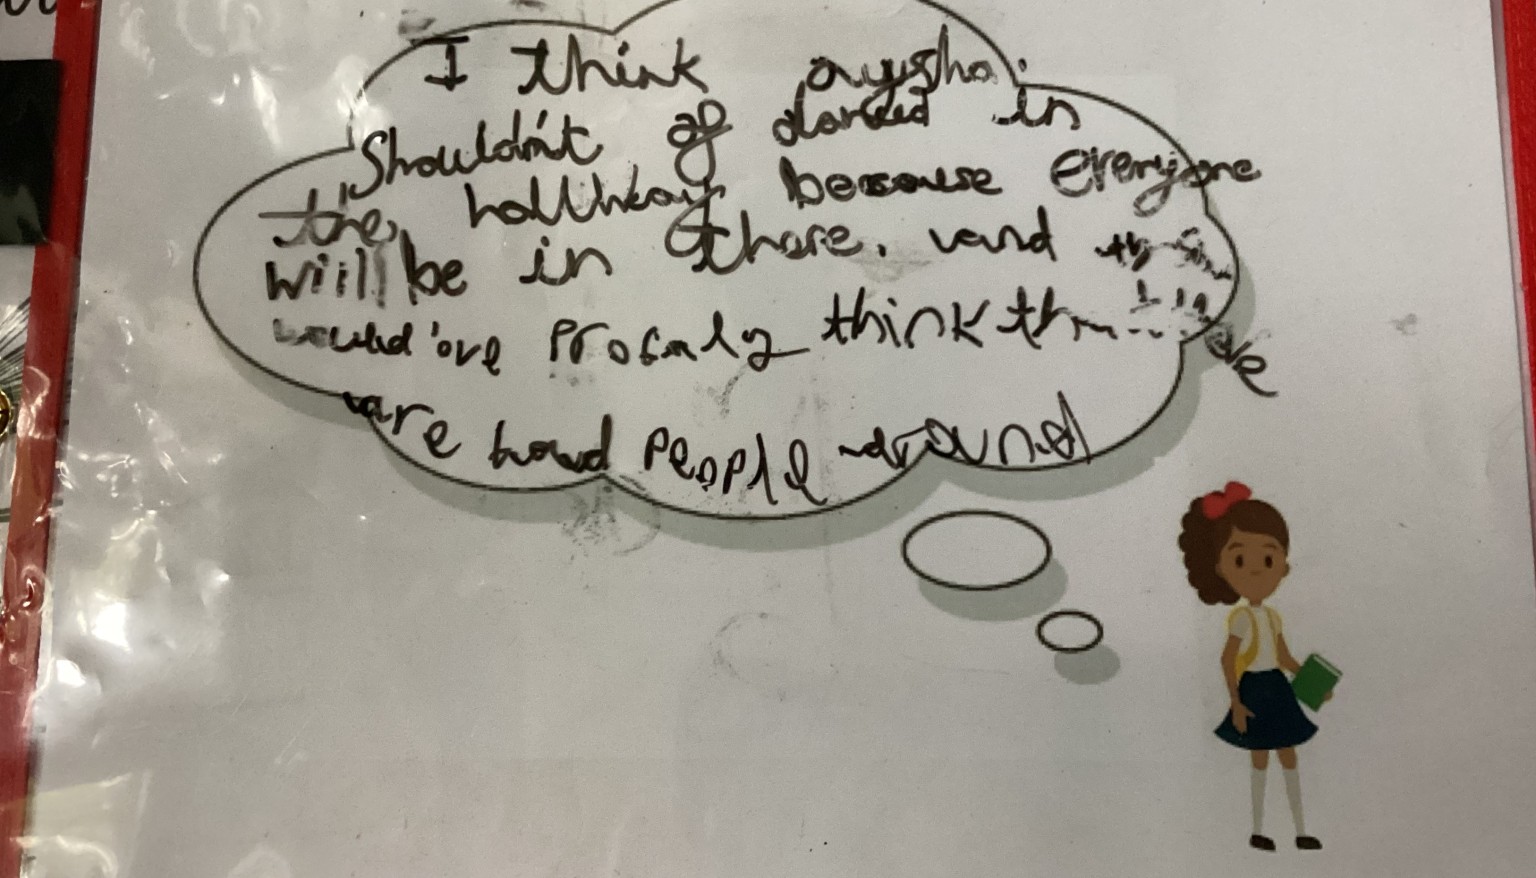 I think ayisha
Shouldn't of danced in
the hallway because everyone
will be in there. and
would've Probaly think
are bad people around